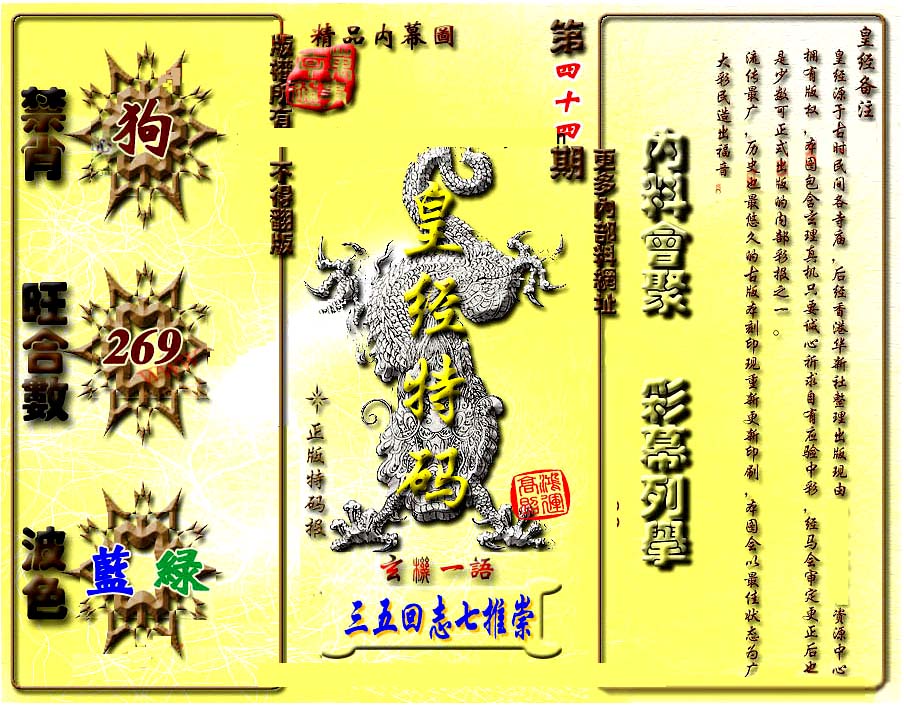 精品內幕圖
第四十四期
版權所有
不得翻版
更多內部料網址
禁肖
狗
旺合數
269
波色
藍 綠
皇经特码
正版特码报
鴻運高照
玄機一語
三五回志七推崇
內料會聚
彩幕列舉
皇经备注
皇经源于古时民间各寺庙，后经香港华新社整理出版现由 资源中心
拥有版权，本图包含玄理真机只要诚心祈求自有应验中彩，经马会审定更正后也
是少数可正式出版的内部彩报之一。
流传最广，历史也最悠久的古版本刻印现重新更新印刷，本图会以最佳状态为广
大彩民造出福音